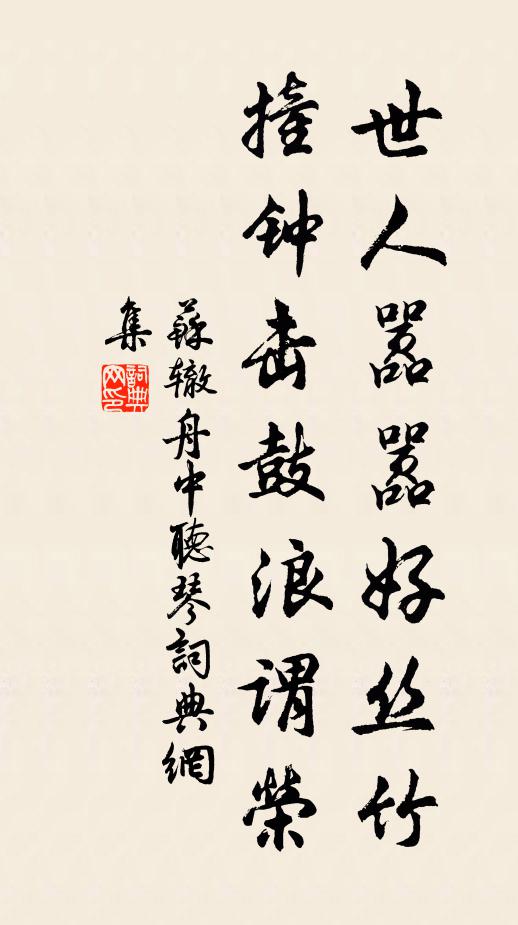 世人嚣嚣好丝竹
撞钟击鼓浪谓榮
蘇辙舟中聴琴詞典網
集
詞典
网印